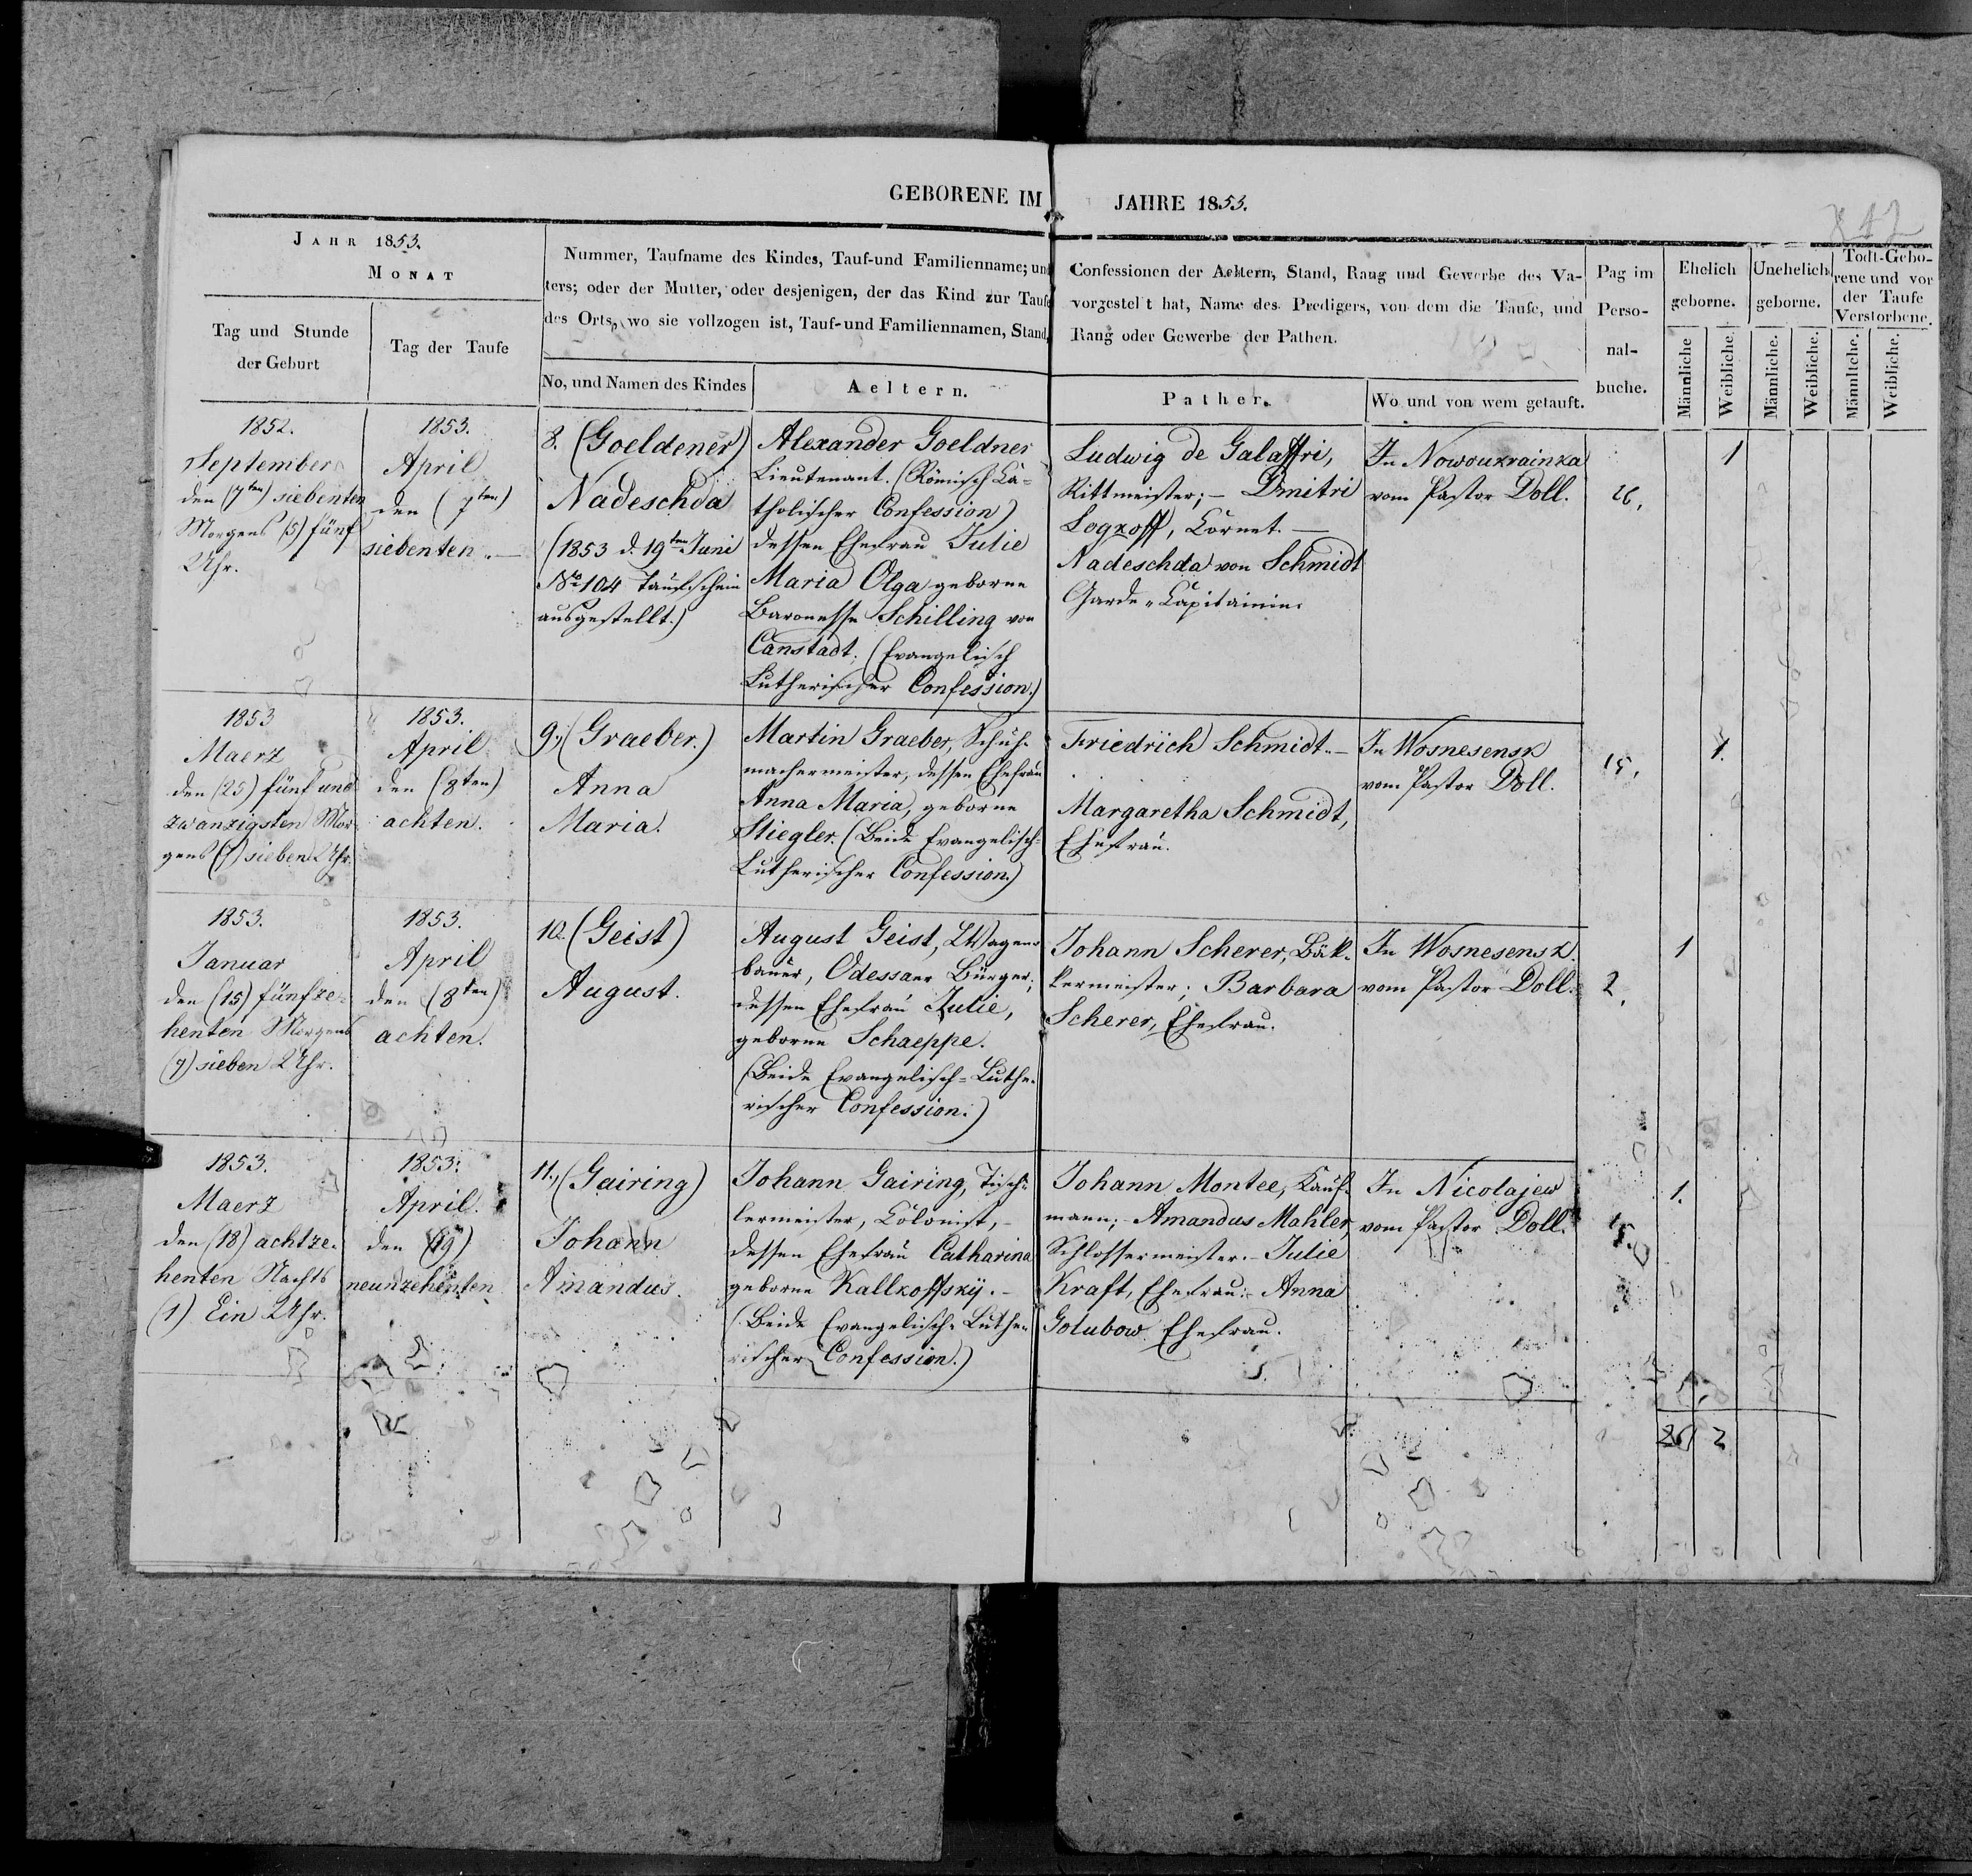 GEBORENE IM JAHRE 1853.
JAHR 1853.
MONAT
Tag und Stunde
der Geburt
Tag der Taufe
Nummer, Taufname des Kindes, Tauf-und Familienname; und
ters; oder der Mutter, oder desjenigen, der das Kind zur Taufe
des Orts, wo sie vollzogen ist, Tauf-und Familiennamen, Stand,
No, und Namen des Kindes
Aeltern.
Confessionen der Aeltern, Stand, Rang und Gewerbe des Va-
vorgestellt hat, Name des Predigers, von dem die Taufe, und
Rang oder Gewerbe der Pathen.
Pather.
Wo und von wem getauft.
Pag im
Perso-
nal-
buche.
Ehelich
geborne.
Unehelich
geborne.
Todt-Gebo-
rene und vor
der Taufe
Verstorbene.
Männliche
Weibliche.
Männliche.
Weibliche.
Männliche.
Weibliche.
1852.
September
den (7ten) siebenten
Morgens (5) fünf
Uhr.
1853.
April
den (7ten)
siebenten.
8. (Goeldener)
Nadeschda
(1853 d. 19ten Juni
No 104 Taufschein
ausgestellt.)
Alexander Goeldner
Lieutenant. (Römisch Ca-
tholischer Confession)
dessen Ehefrau Julie
Maria Olga geborne
Baronesse Schilling von
Canstadt. (Evangelisch
Lutherischer Confession.)
Ludwig de Galaffri,
Rittmeister; - Dmitri
Logkoff, Cornet. -
Nadeschda von Schmidt
Garde-Capitainin.
In Nowoukrainka
vom Pastor Doll.
26.
1
1853
Maerz
den (25) fünf und
zwanzigsten Mor-
gens (7) sieben Uhr.
1853.
April
den (8ten)
achten.
9., (Graeber.)
Anna
Maria.
Martin Graeber, Schuh-
machermeister, dessen Ehefrau
Anna Maria, geborne
Stiegler. (Beide Evangelisch-
Lutherischer Confession.)
Friedrich Schmidt. -
Margaretha Schmidt,
Ehefrau.
In Wosnesensk
vom Pastor Doll.
15.
1.
1853.
Januar
den (15) fünfze-
henten Morgens
(7) sieben Uhr.
1853.
April
den (8ten)
achten.
10. (Geist)
August.
August Geist, Wagen-
bauer, Odessaer Bürger;
dessen Ehefrau Julie,
geborne Schaeppe.
(Beide Evangelisch-Luthe-
rischer Confession.)
Johann Scherer, Bäk-
kermeister; Barbara
Scherer, Ehefrau.
In Wosnesensk.
vom Pastor Doll.
2.
1
1853.
Maerz
den (18) achtze-
henten Nachts
(1) Ein Uhr.
1853.
April.
den (19)
neunzehenten
11., (Gairing)
Johann
Amandus.
Johann Gairing, Tisch-
lermeister, Colonist, -
dessen Ehefrau Catharina
geborne Kallkoffsky. -
(Beide Evangelisch-Luthe-
rischer Confession.)
Johann Montee, Kauf-
mann; - Amandus Mahler,
Schlossermeister. - Julie
Kraft, Ehefrau; - Anna
Golubow Ehefrau.
In Nicolajew
vom Pastor Doll.
1.
2